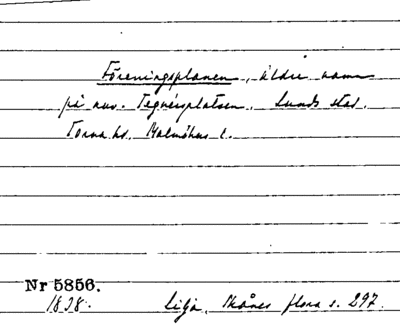 Föreningsplanen, äldre namn
på nuv. Tegnérsplatsen, Lunds stad.
Torna hd. Malmöhus l.
Nr 5856.
1838. Lilja, Skånes flora s. 297.